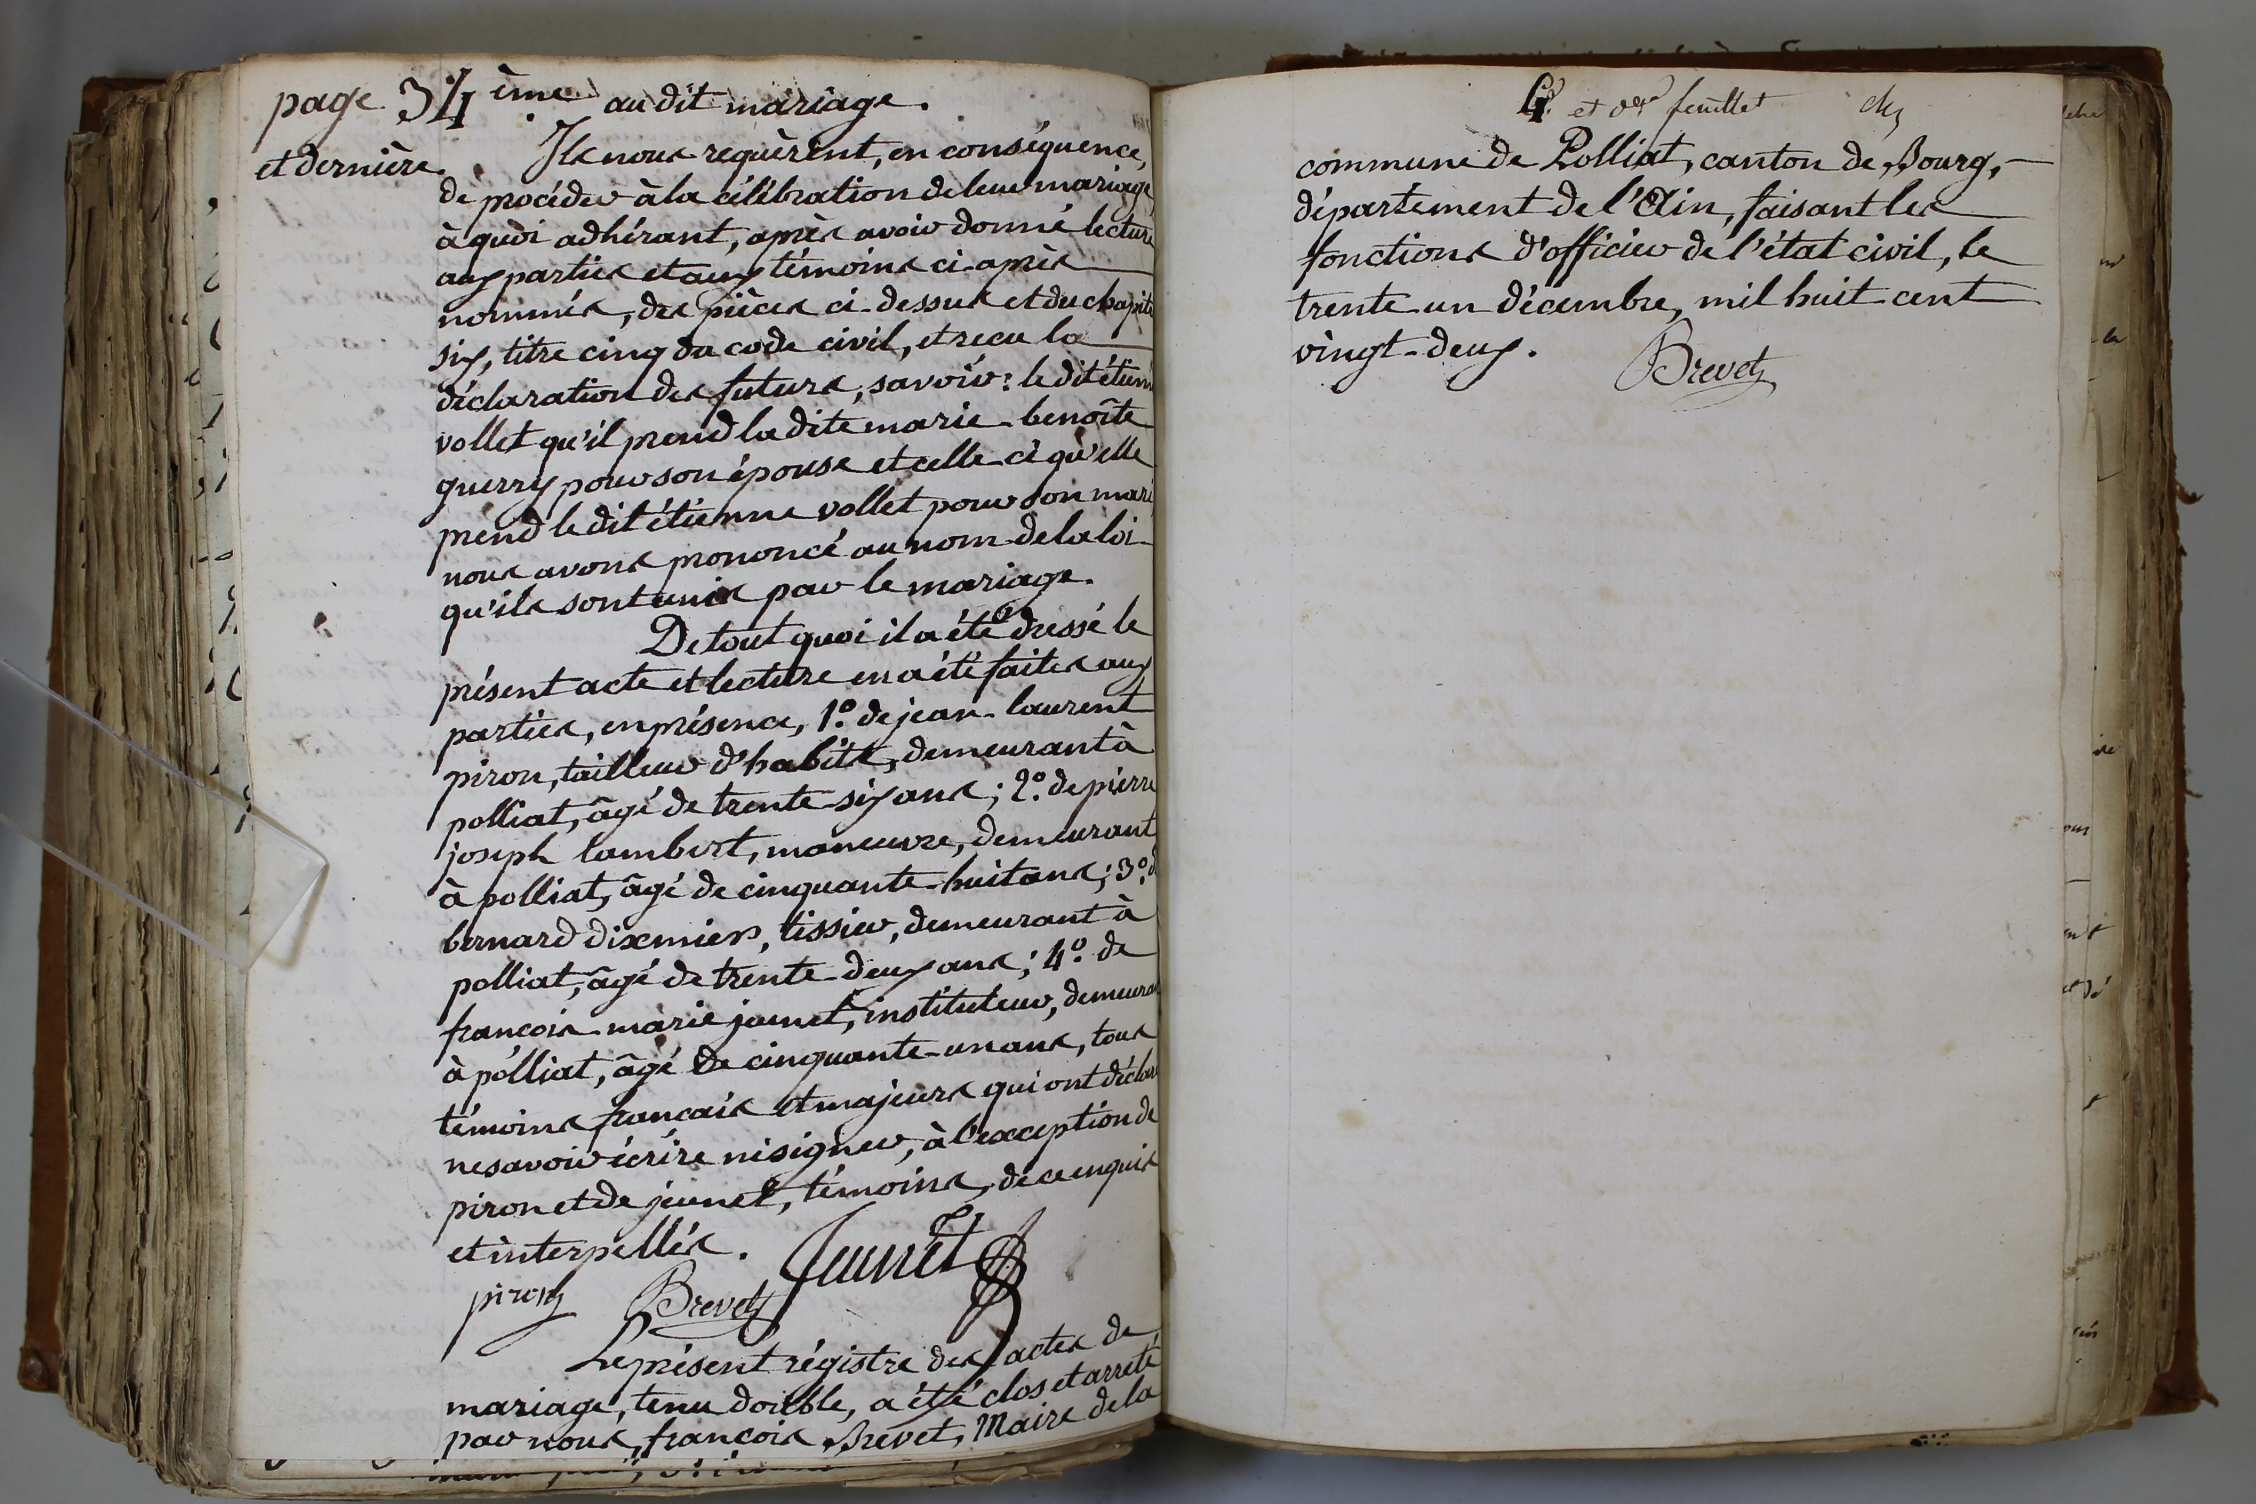 page 34ème
et dernière.
au dit mariage.
Ils nous requèrent, en conséquence,
de procéder à la célébration de leur mariage,
à quoi adhérant, après avoir donné lecture
aux parties et aux témoins ci-après
nommés, des pièces ci-dessus et du chapitr
six, titre cinq du code civil, et recu la
déclaration des futurs, savoir: le dit étienn
vollet qu'il prend la dite marie-benoîte
guerry pour son épouse et celle-ci qu'elle
prend le dit étienne vollet pour son mari
nous avons prononcé au nom de la loi
qu'ils sont unis par le mariage.
De tout quoi il a été dressé le
présent acte et lecture en a été faites aux
parties, en présence, 1º. de jean-laurent
piron, tailleur d'habits, demeurant à
polliat, âgé de trente-six ans; 2º. de pierre
joseph lambert, maneuvre, demeurant
à polliat, âgé de cinquante-huit ans; 3º. d
bernard dixmier, tissier, demeurant à
polliat, âgé de trente-deux ans; 4º. de
françois-marie jeunet, instituteur, demeura
à polliat, âgé de cinquante-un ans, tous
témoins francais et majeurs qui ont déclar
ne savoir écrire ni signer, à l'exception de
piron et de jeunet, témoins, de ce enquis
et interpellés.
piron Brevet Jeunet
Le présent régistre des actes de
mariage, tenu double, a été clos et arreté
par nous, françois Brevet, Maire de la
4e. et der feuillet
commune de Polliat, canton de Bourg,
département de l'Ain, faisant les
fonctions d'officier de l'état civil, le
trente-un décembre, mil huit cent
vingt-deux.
Brevet